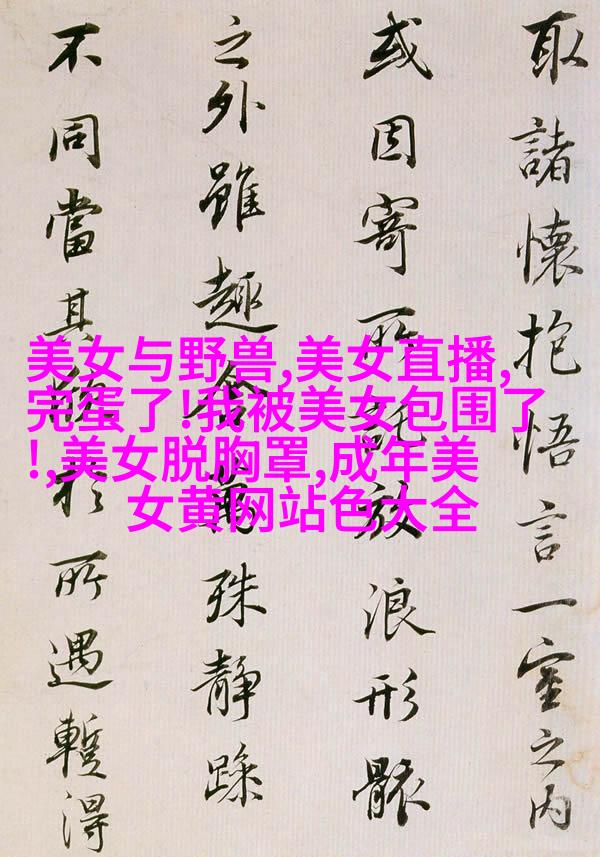 取諸懷抱悟言一室之内
或因寄所託放浪形骸
之外雖趣舍萬殊静躁
不同當其欣於所遇暫得
美女与野兽,美女直播,
完蛋了!我被美女包围了
!,美女脱胸罩,成年美
女黄网站色大全